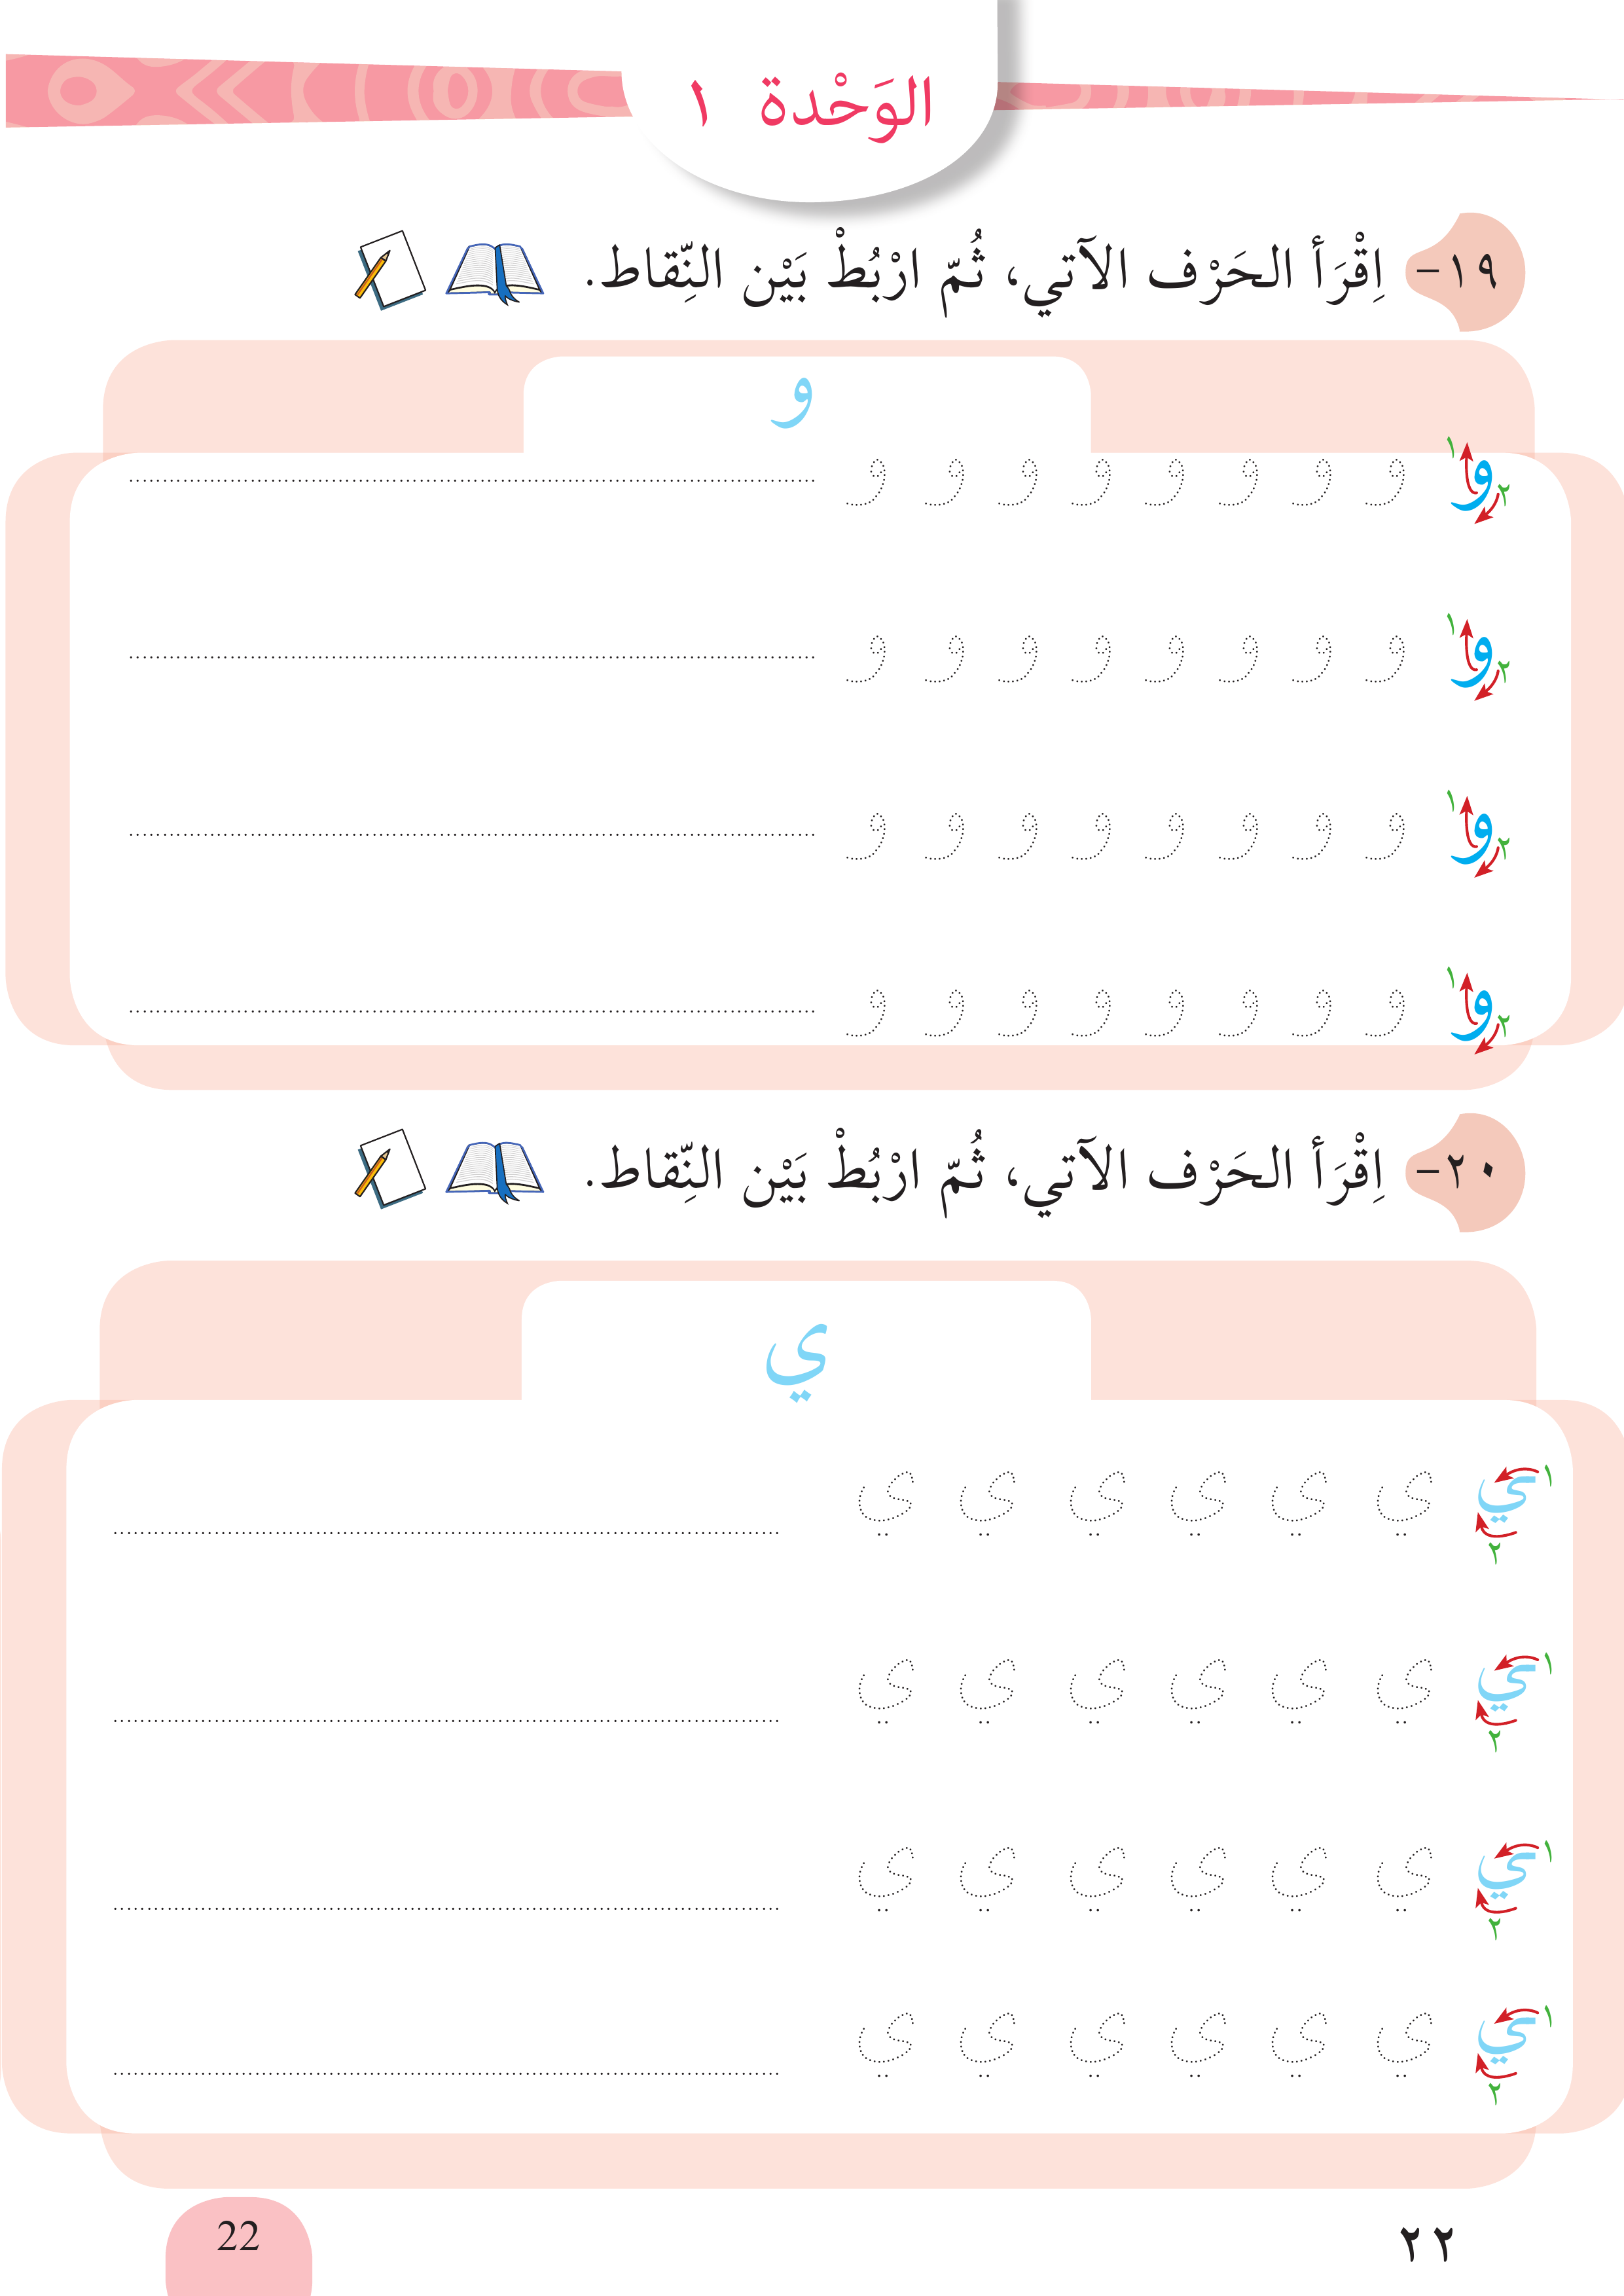 الوَحْدة ١
١٩- اِقْرَأ الحَرْف الآتي، ثُمّ ارْبُطْ بَيْن النِّقاط.
و
و ١ ٢ و و و و و و و و
و ١ ٢ و و و و و و و و
و ١ ٢ و و و و و و و و
و ١ ٢ و و و و و و و و
٢٠- اِقْرَأ الحَرْف الآتي، ثُمّ ارْبُطْ بَيْن النِّقاط.
ي
ي ١ ٢ ي ي ي ي ي ي
ي ١ ٢ ي ي ي ي ي ي
ي ١ ٢ ي ي ي ي ي ي
ي ١ ٢ ي ي ي ي ي ي
٢٢
22